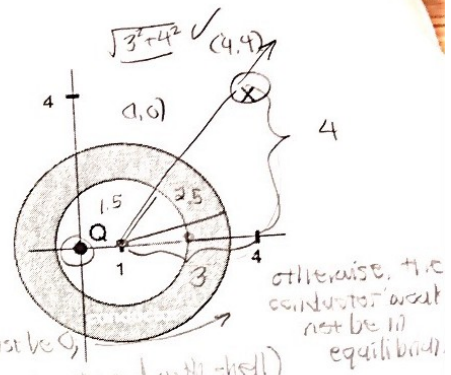 √3²+4² ✓ (4,4)
4
(1,0)
X
4
1.5
2.5
Q
1
3
4
otherwise, the
conductor
not be in
equilibrium
be 0,